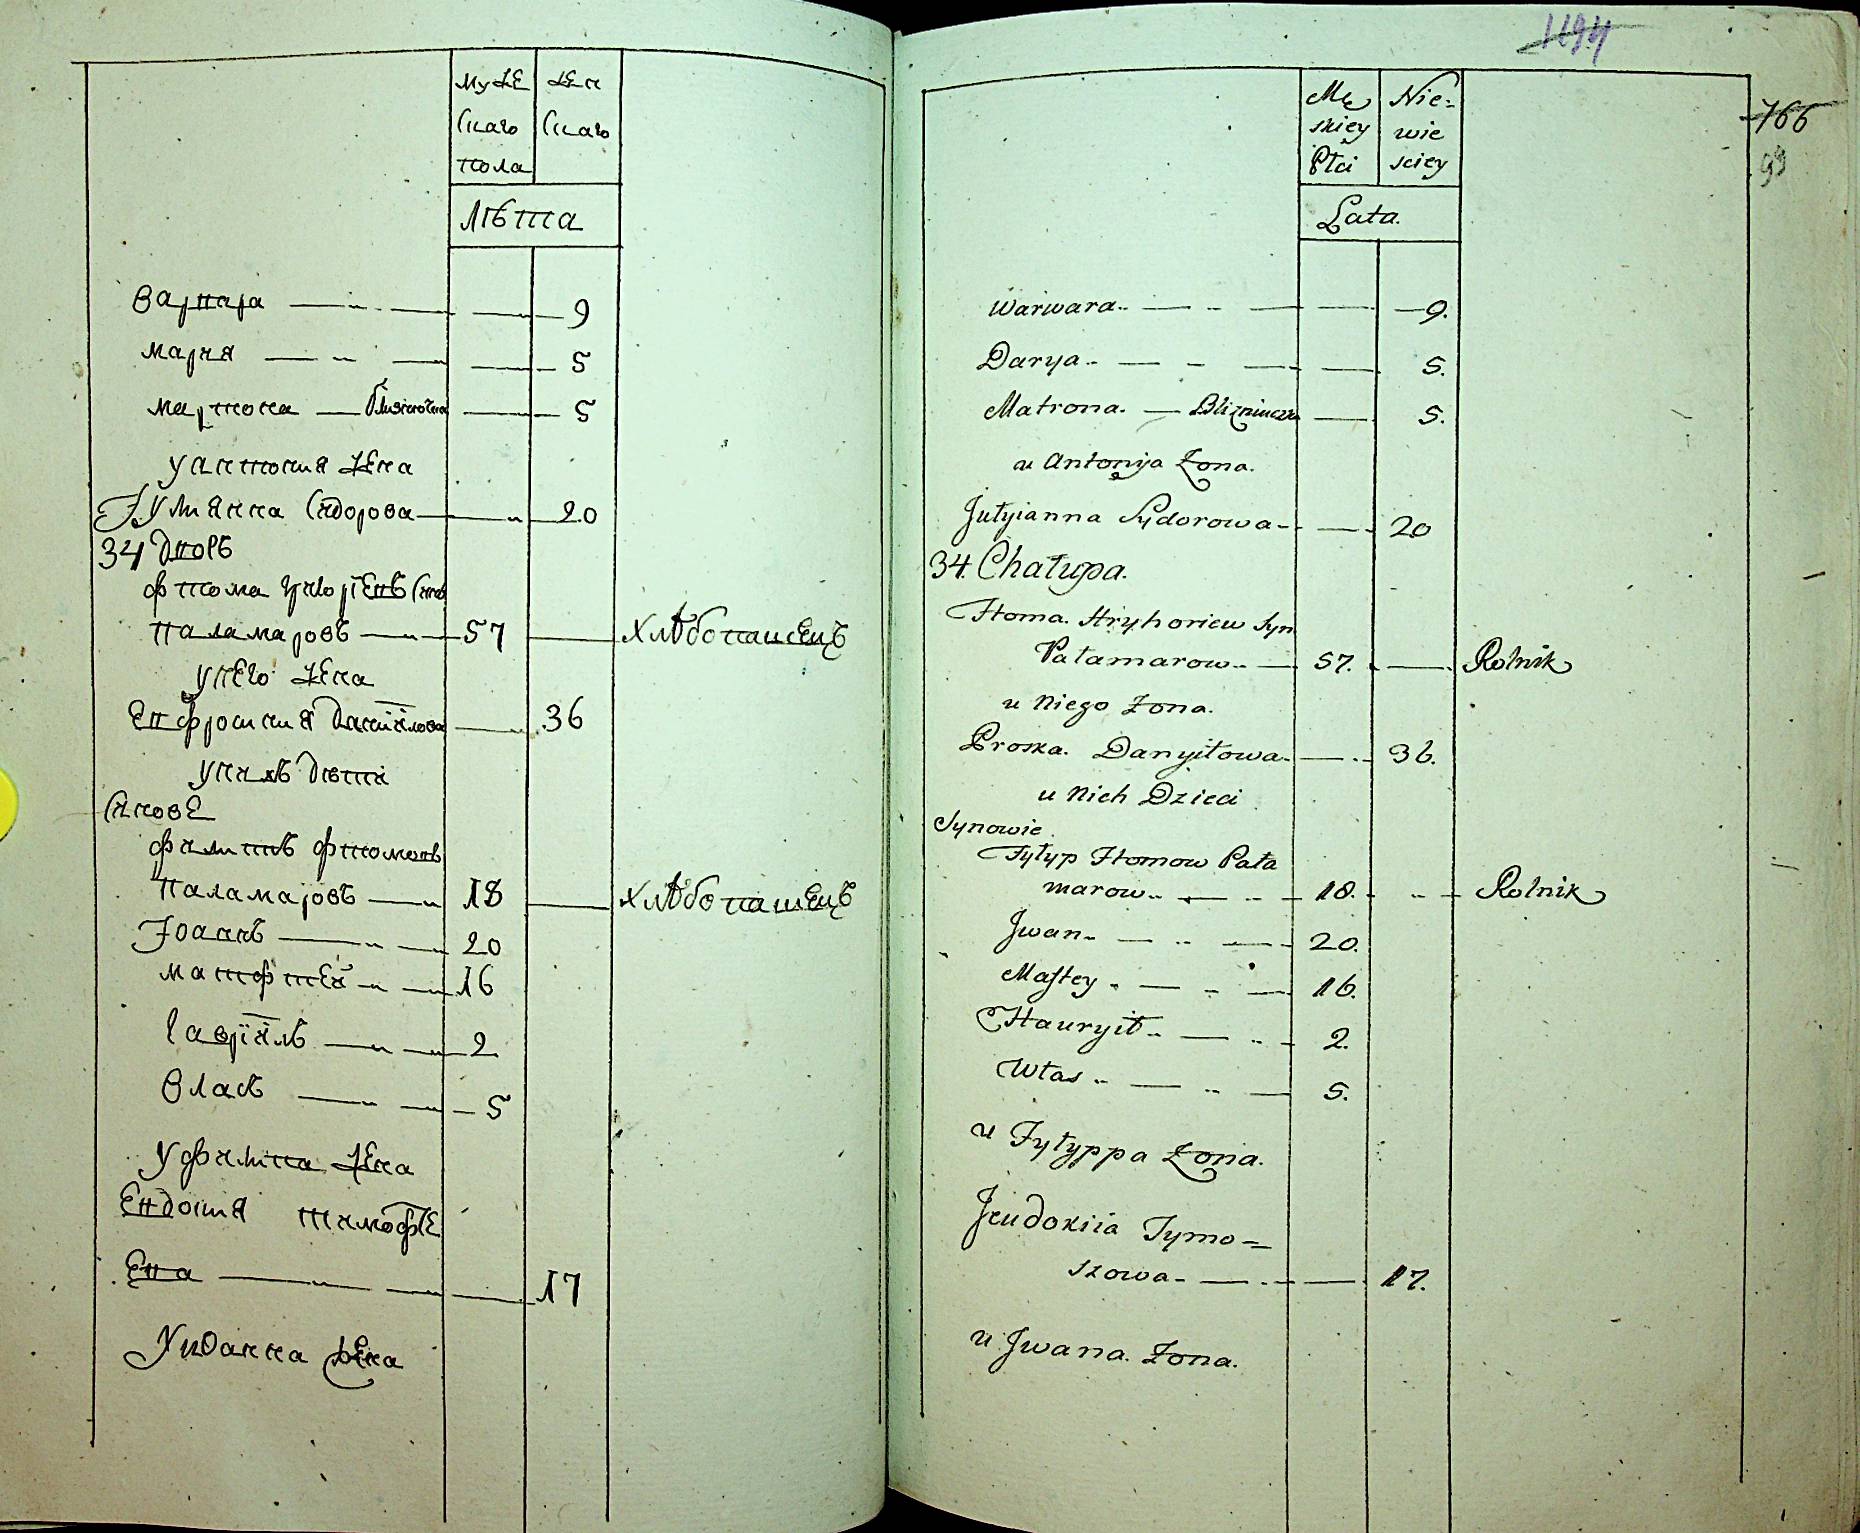 муже
скаго
пола
жен
скаго
лѣта
Варвара — 9
Мария — 5
Матрона — близнючка 5
у Антония жена
Іулиянна Сидорова — 20
34 дворъ
Фтома Григориевъ синъ
Паламаровъ — 57 — хлѣбопашецъ
у него жена
Евфросиния Даниилова — 36
у них дѣти
синове
Филиппъ Фтомовъ
Паламаровъ — 18 — хлѣбопашецъ
Іоаннъ — 20
Матфтей — 16
Гавріилъ — 2
Власъ — 5
у Филиппа жена
Евдокия Тимофѣе
ева — 17
у Иоанна жена
1194
766
99
Mę
skiey
Płci
Nie-
wie
sciey
Lata.
Warwara. — 9.
Darya. — 5.
Matrona. — Blizniuczka 5.
u Antonija Zona.
Jułyianna Sydorowa — 20
34. Chałupa.
Ftoma. Hryhoriew Syn
Pałamarow. — 57. — Rolnik
u Niego Zona.
Proska. Danyiłowa — 36.
u Nich Dzieci
Synowie
Fyłyp Ftomow Pała
marow. — 18. — Rolnik
Jwan. — 20.
Maftey. — 16.
Hauryił. — 2.
Własـ — 5.
u Fyłyppa Zona.
Jeudokiia Tymo=
szowa — 17.
u Jwana. Zona.